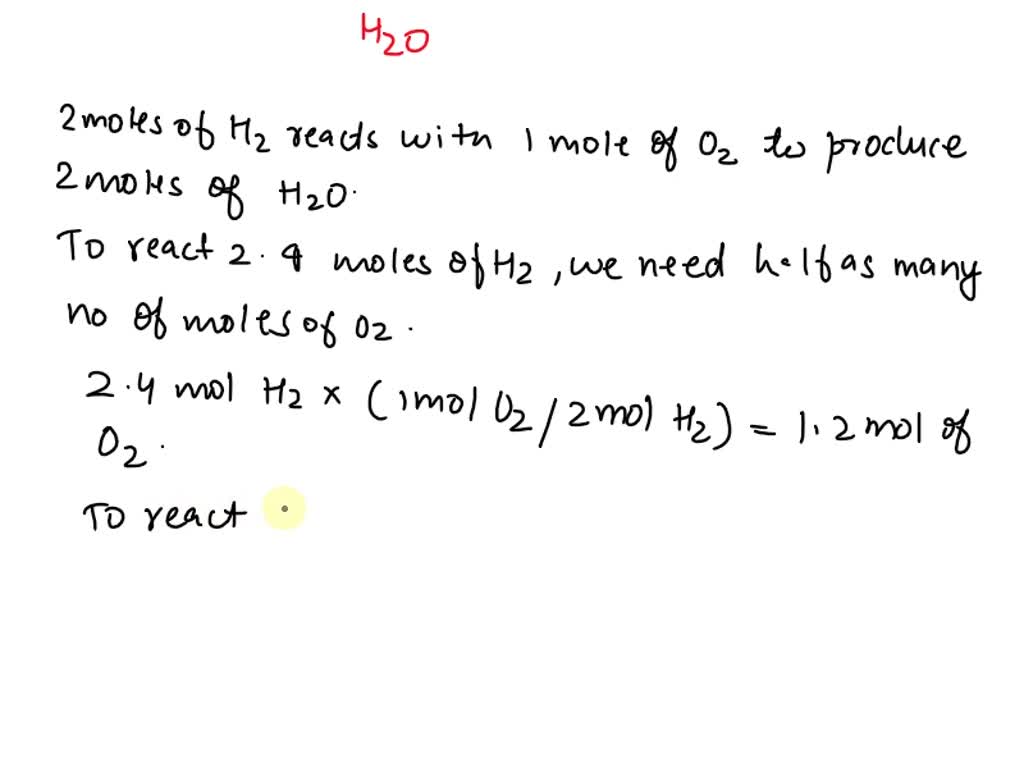 H2O
2 moles of H2 reacts with 1 mole of O2 to produce
2 moles of H2O.
To react 2.4 moles of H2, we need half as many
no of moles of O2.
2.4 mol H2 × (1 mol O2/2 mol H2) = 1.2 mol of
O2.
To react